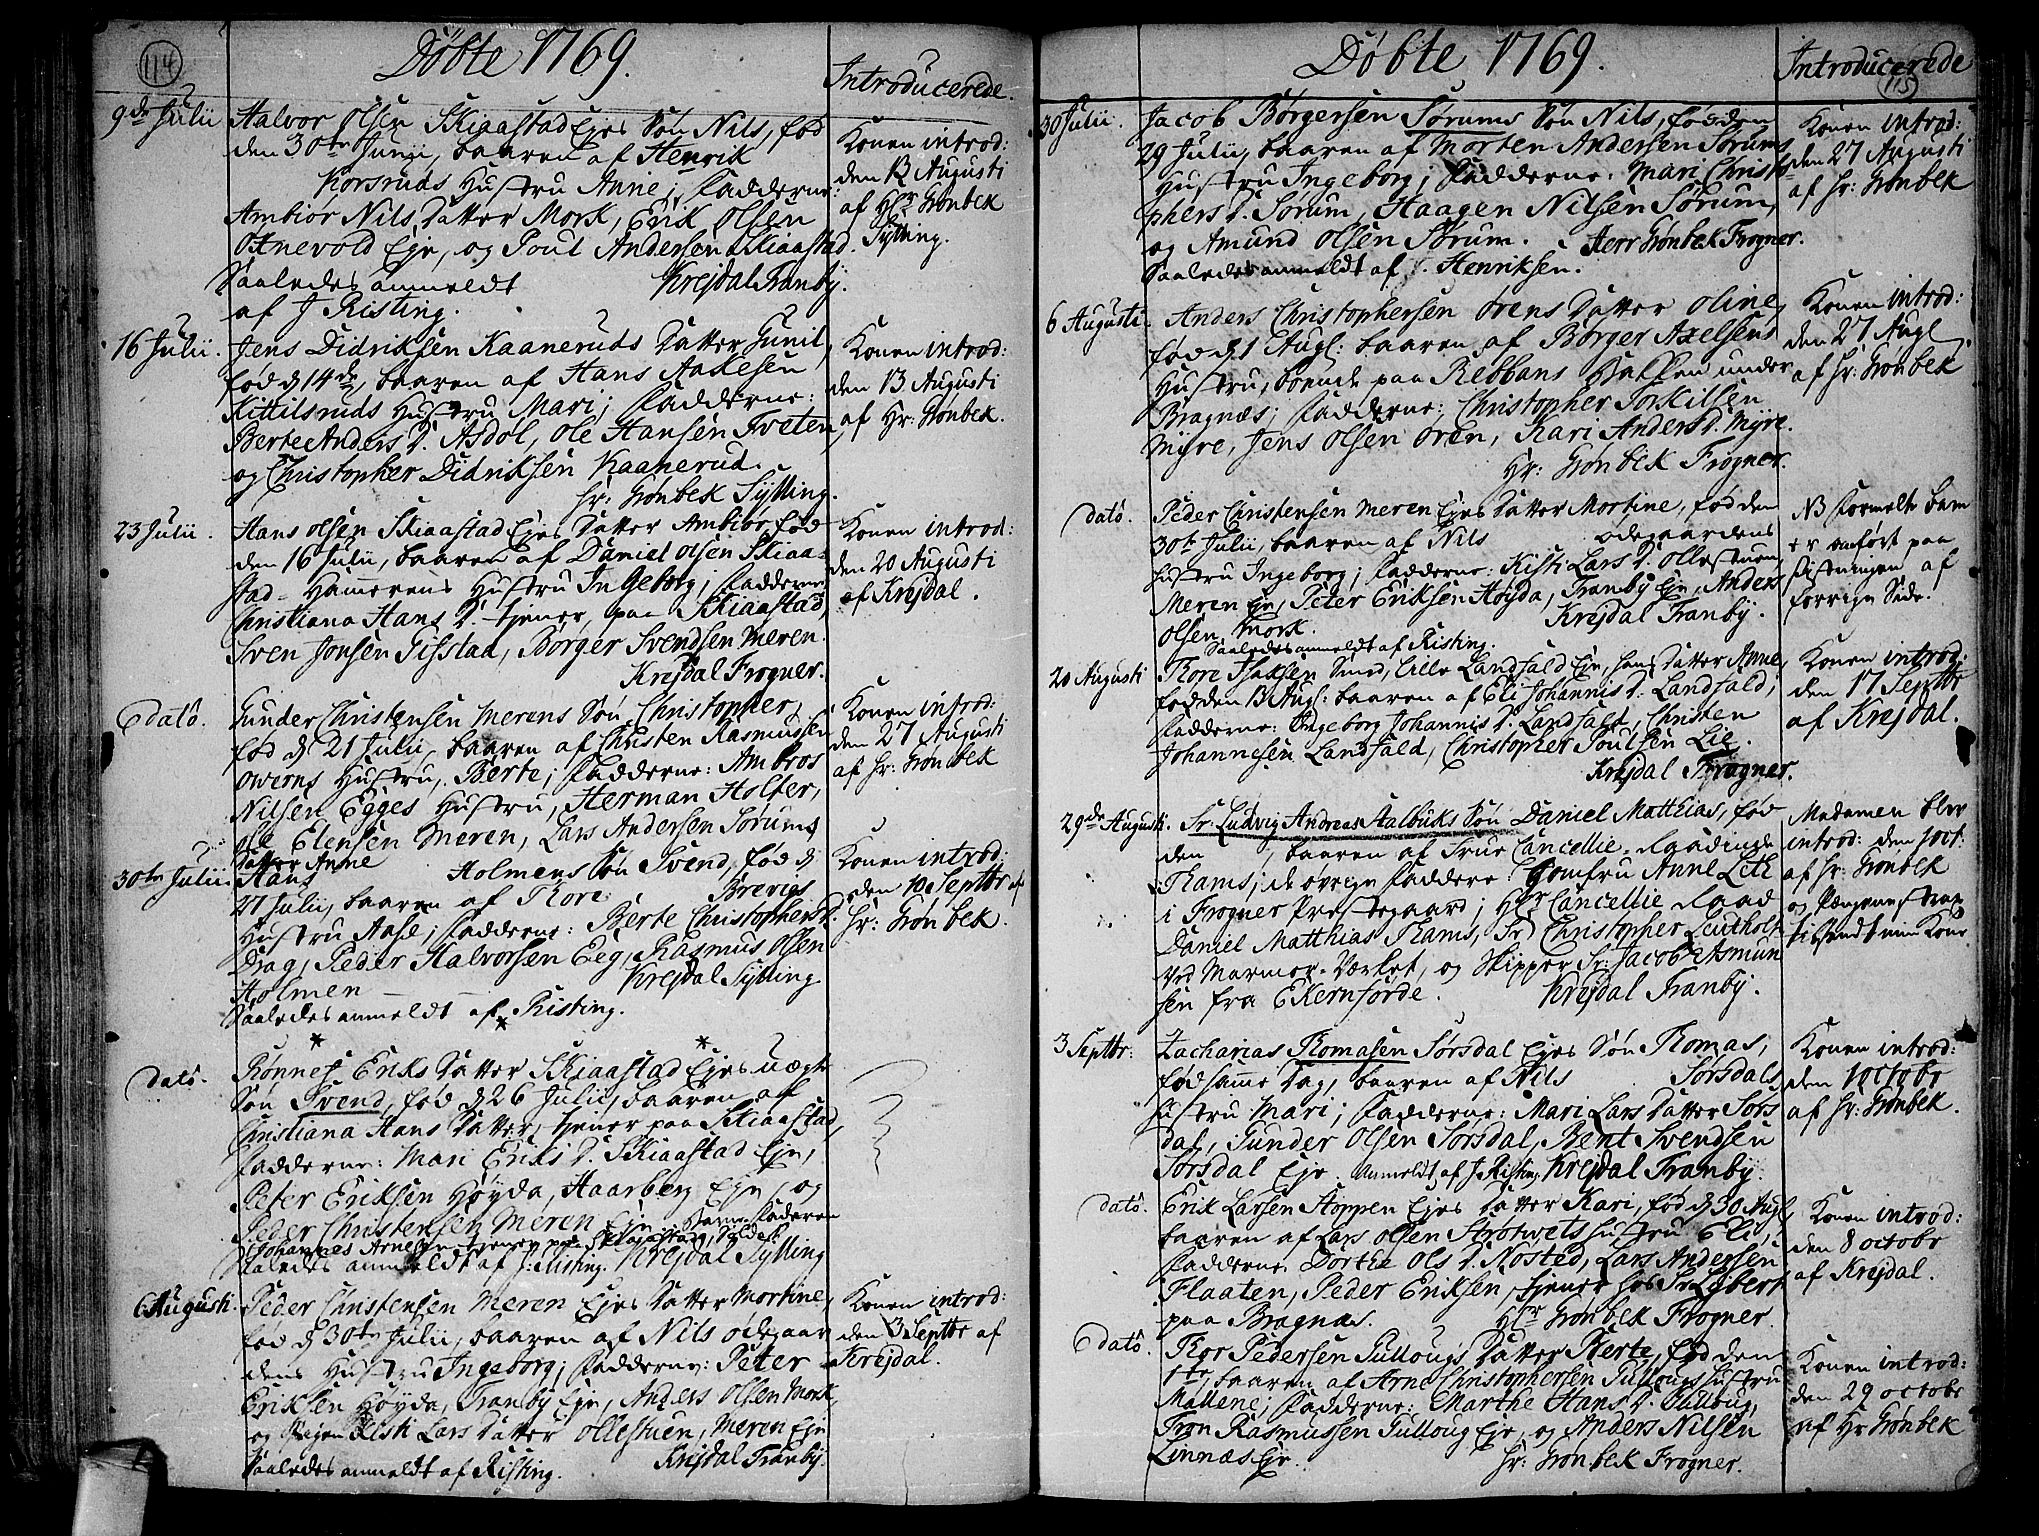 114
Døbte 1769.
Introducerede.
9de Julii
Halvor Olsen Skiaastad Ejes Søn Nils, fød
den 30te Junii, baaren af Henrik
Korsruds Hustru Anne; Fadderne:
Ambiør Nils Datter Mork, Erik Olsen
Eje, og Poul Andersen Skiaastad.
Saaledes anmeldt Krejdal Tranby.
af J Risting.
Konen introd:
den 13 Augusti
af Hr Grønbek
Sylling.
16 Julii.
Jens Didriksen Kaaneruds Datter Gunil,
fød d 14de, baaren af Hans Aakesen
Kittilsruds Hustru Mari; Fadderne:
Berte Anders D. Asdøl, Ole Hansen Tveten,
og Christopher Didriksen Kaanerud.
Hr: Grønbek Sylling.
Konen introd:
den 13 Augusti
af Hr: Grønbek.
23 Julii.
Hans Olsen Skiaastad Ejes Datter Ambiør fød
den 16 Julii, baaren af Daniel Olsen Skiaa-
stad-Hammerens Hustru Ingeborg; Fadderne
Christiana Hans D. tjener paa Skiaastad,
Sven Jonsen Gisstad, Børger Svendsen Meren.
Krejdal Frogner.
Konen introd:
den 20 Augusti
af Krejdal.
dato.
Gunder Christensen Merens Søn Christopher,
fød d 21 Julii, baaren af Christen Rasmussen
Owerns Hustru, Berte; Fadderne: Ambros
Nilsen Egges Hustru, Herman Holter,
Ole Elensen Meren, Lars Andersen Sørums
Datter Anne
Konen introd:
den 27 Augusti
af Hr: Grønbek
30te Julii.
Hans Holmens Søn Svend, fød d
27 Julii, baaren af Thore Brevigs
Hustru Aase; Fadderne: Berte Christophers D.
Drag, Peder Halvorsen Eeg, Rasmus Olsen
Holmen Krejdal Sylling
Saaledes anmeldt af Risting.
Konen introd:
den 10 Septbr af
Hr: Grønbek.
dato.
Rønnes Eriks Datter Skiaastad Ejes uægte
Søn Svend, fød d 26 Julii, baaren af
Christiana Hans Datter, tjener paa Skiaastad,
Fadderne: Mari Eriks D. Skiaastad Eje,
Peter Eriksen Høyda, Haarberg Eje, og
Peder Christensen Meren Eje. Barne Faderen
Johannes Arnesen tjener paa Skiaastad, Soldat.
Saaledes anmeldt af J: Risting. Krejdal Sylling
6 Augusti.
Peder Christensen Meren Ejes Datter Mortine,
fød d 30te Julii, baaren af Nils Ødegaar-
dens Hustru Ingeborg; Fadderne: Peter
Eriksen Høyda, Tranby Eje, Anders Olsen Mork,
og Pigen Kisti Lars Datter Ollestuen, Meren Eje
Saaledes anmeldt af Risting. Krejdal Tranby.
Konen introd:
den 3 Septbr af
Krejdal.
Døbte 1769.
Introducerede
115
30 Julii.
Jacob Børgersen Sørums Søn Nils, fød den
29 Julii, baaren af Morten Andersen Sørums
Hustru Ingeborg; Fadderne: Mari Christo-
phers D. Sørum, Haagen Nilsen Sørum,
og Amund Olsen Sørum. Herr Grønbek Frogner.
Saaledes anmeldt af Henriksen.
Konen introd:
den 27 Augusti
af Hr: Grønbek
6 Augusti.
Anders Christophersen Ørens Datter Oline,
fød d 1 Aug: baaren af Børger Axelsens
Hustru, boende paa Rebbans Bakken under
Bragnæs; Fadderne: Christopher Torkilsen
Myre, Jens Olsen Øren, Kari Anders D. Myre.
Hr: Grønbek Frogner.
Konen introd:
den 27 Aug
af Hr: Grønbek
dato.
Peder Christensen Meren Ejes Datter Mortine, fød den
30te Julii, baaren af Nils Ødegaardens
Hustru Ingeborg; Fadderne: Kisti Lars D. Ollestuen,
Meren Eje, Peter Eriksen Høyda, Tranby Eje, Anders
Olsen Mork. Krejdal Tranby.
Saaledes anmeldt af Risting.
NB Formelte Barn
er anført paa
Slutningen af
forrige Side.
20 Augusti
Thore Isaksen Smed, Lille Landfald Eje, hans Datter Anne,
fød den 13 Aug: baaren af Eli Johannis D. Landfald;
Fadderne: Ingeborg Johannis D. Landfald, Christen
Johannesen Landfald, Christopher Poulsen Lie.
Krejdal Frogner.
Konen introd:
den 17 Septbr
af Krejdal.
29de Augusti.
Sr. Ludvig Andreas Aalbuks Søn Daniel Matthias, fød
den , baaren af Frue Cancellie-Raadinde
Thams; de øvrige Faddere: Jomfru Anne Leth
i Frogner Præstegaard; Hr Cancellie Raad
Daniel Matthias Thams, Sr. Christopher Leutholf
ved Marmor-Værket, og Skipper Sr: Jacob Asmun
sen fra Ekernførde. Krejdal Tranby.
Madamen blev
introd: den 1 oct:
af Hr: Grønbek
og Pengene strax
tilsendt min Kone
3 Septbr:
Zacharias Thomasen Sørsdal Ejes Søn Thomas,
fød samme Dag, baaren af Nils Sørsdals
Hustru Mari; Fadderne: Mari Lars Datter Sørs
dal, Gunder Olsen Sørsdal, Bent Svendsen
Sørsdal Eje. Anmeldt af J. Risting. Krejdal Tranby.
Konen introd:
den 1 octobr
af Hr: Grønbek.
dato.
Erik Larsen Stoppen Ejes Datter Kari, fød d 30 Aug,
baaren af Lars Olsen Strøtwets Hustru Eli,
Fadderne: Dorthe Ols D. Rosted, Lars Andersen
Flaaten, Peder Eriksen, tjener hos Sr. Lybert
paa Bragnæs. Hr Grønbek Frogner.
Konen introd:
den 8 octobr
af Krejdal.
dato.
Thor Pedersen Gullougs Datter Berte, fød den
1te, baaren af Arne Christophersen Gullougs Hustru
Mallene; Fadderne: Marthe Hans D. Gulloug,
Tron Rasmussen Gulloug Eje, og Anders Nilsen
Linnæs Eje. Hr: Grønbek Frogner.
Konen introd:
den 29 octobr
af Hr Grønbek